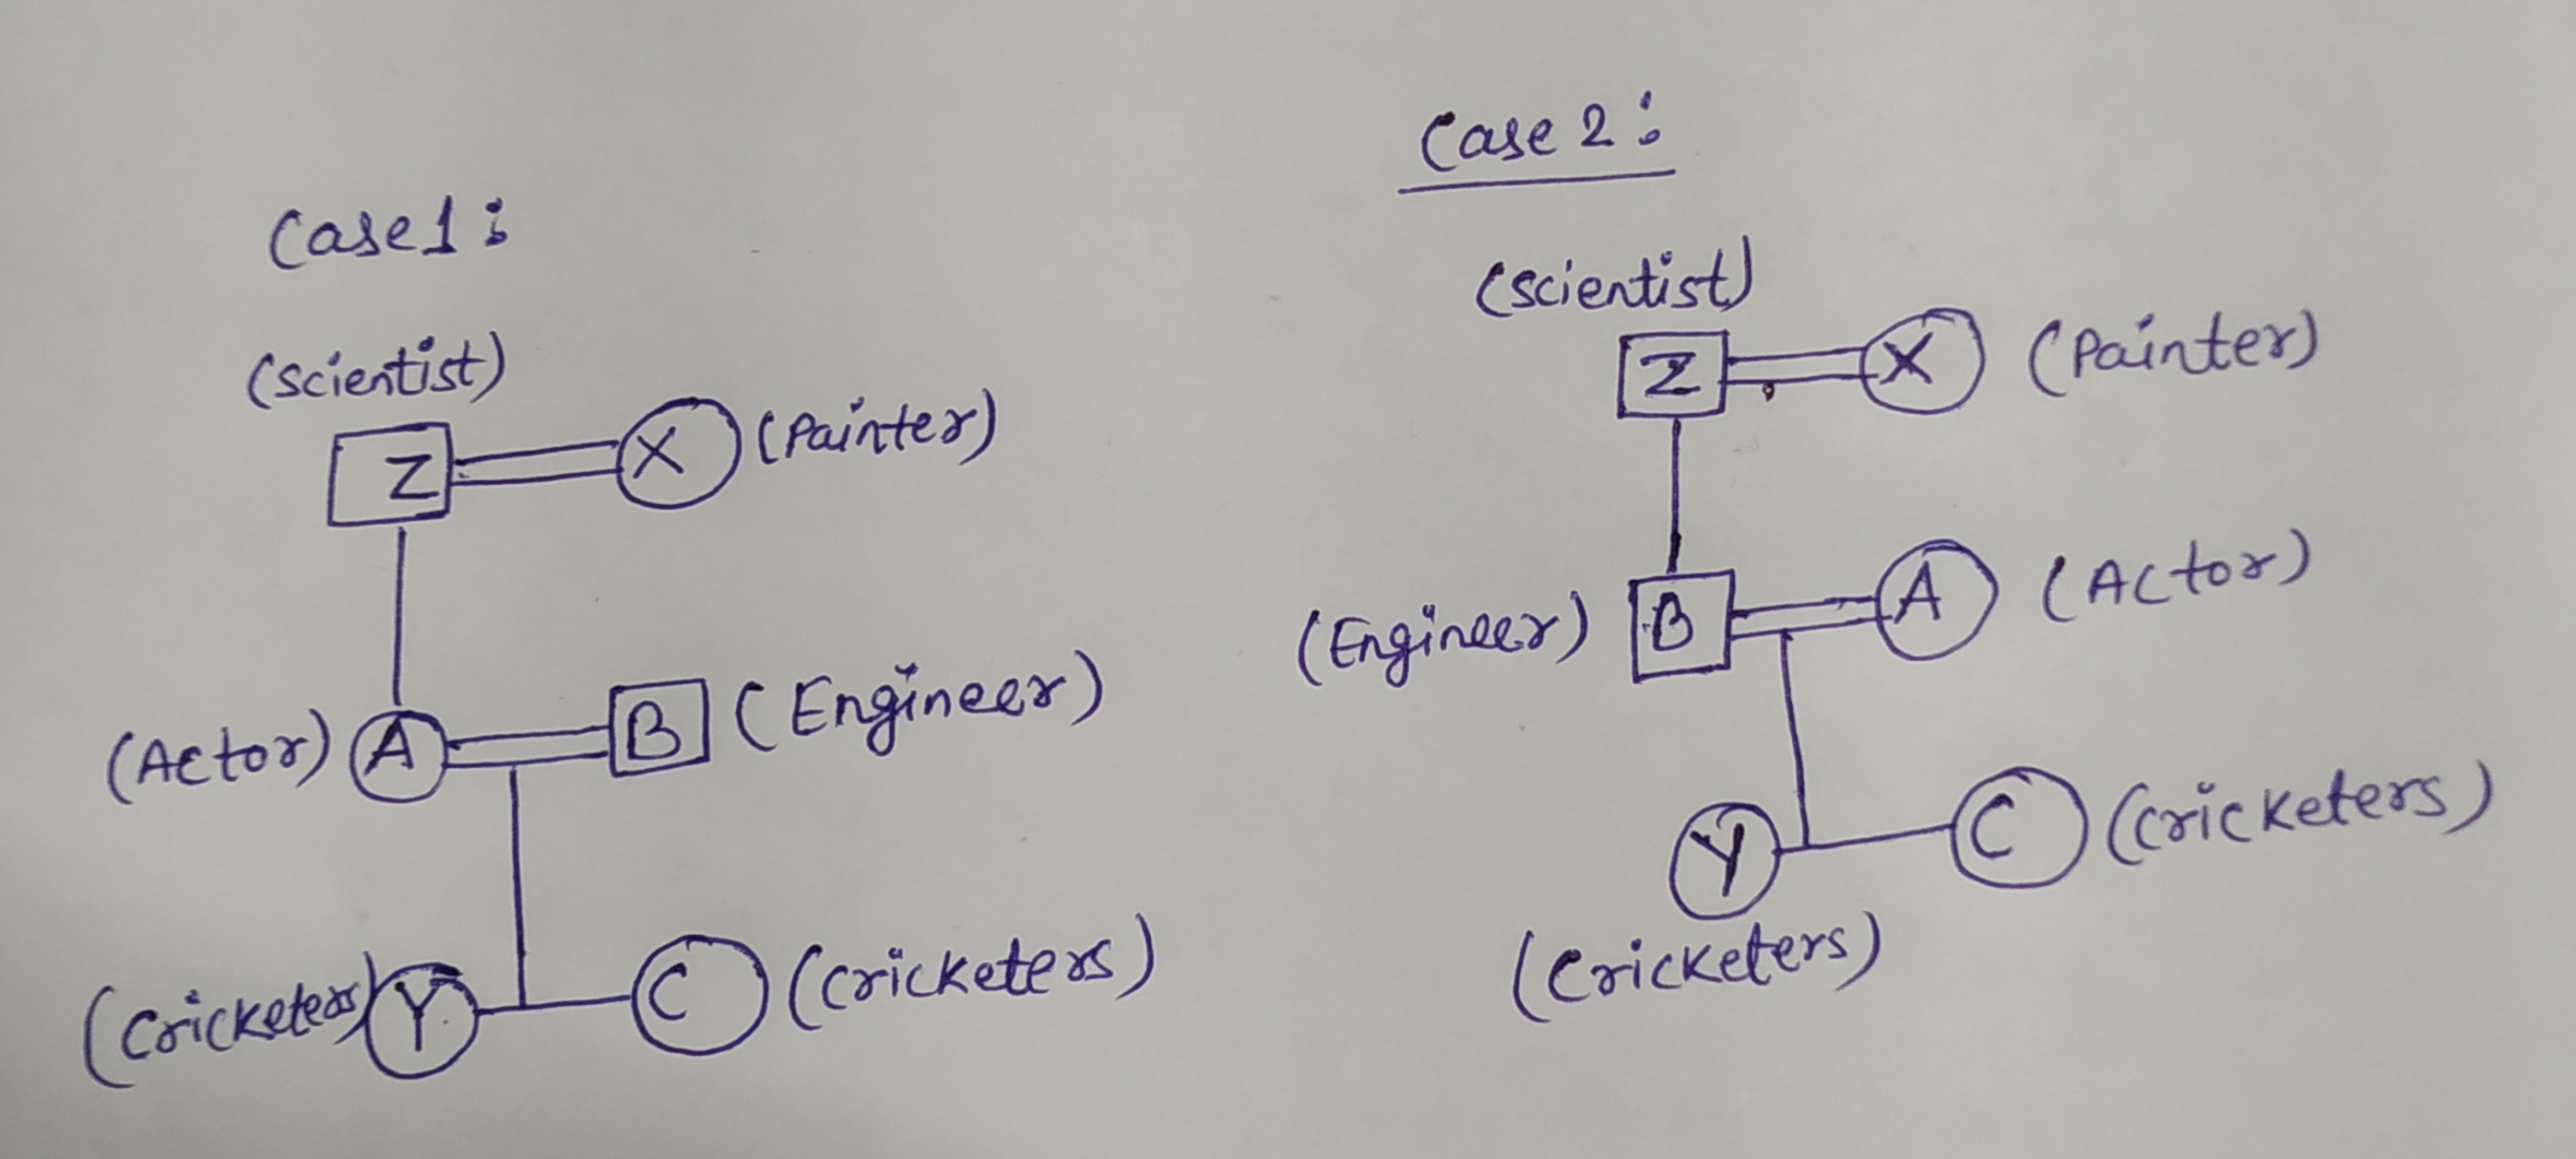 Case 1 :
(Scientist)
Z X (Painter)
(Actor) A B (Engineer)
(Cricketers) Y C (Cricketers)
Case 2 :
(Scientist)
Z X (Painter)
(Engineer) B A (Actor)
Y C (Cricketers)
(Cricketers)